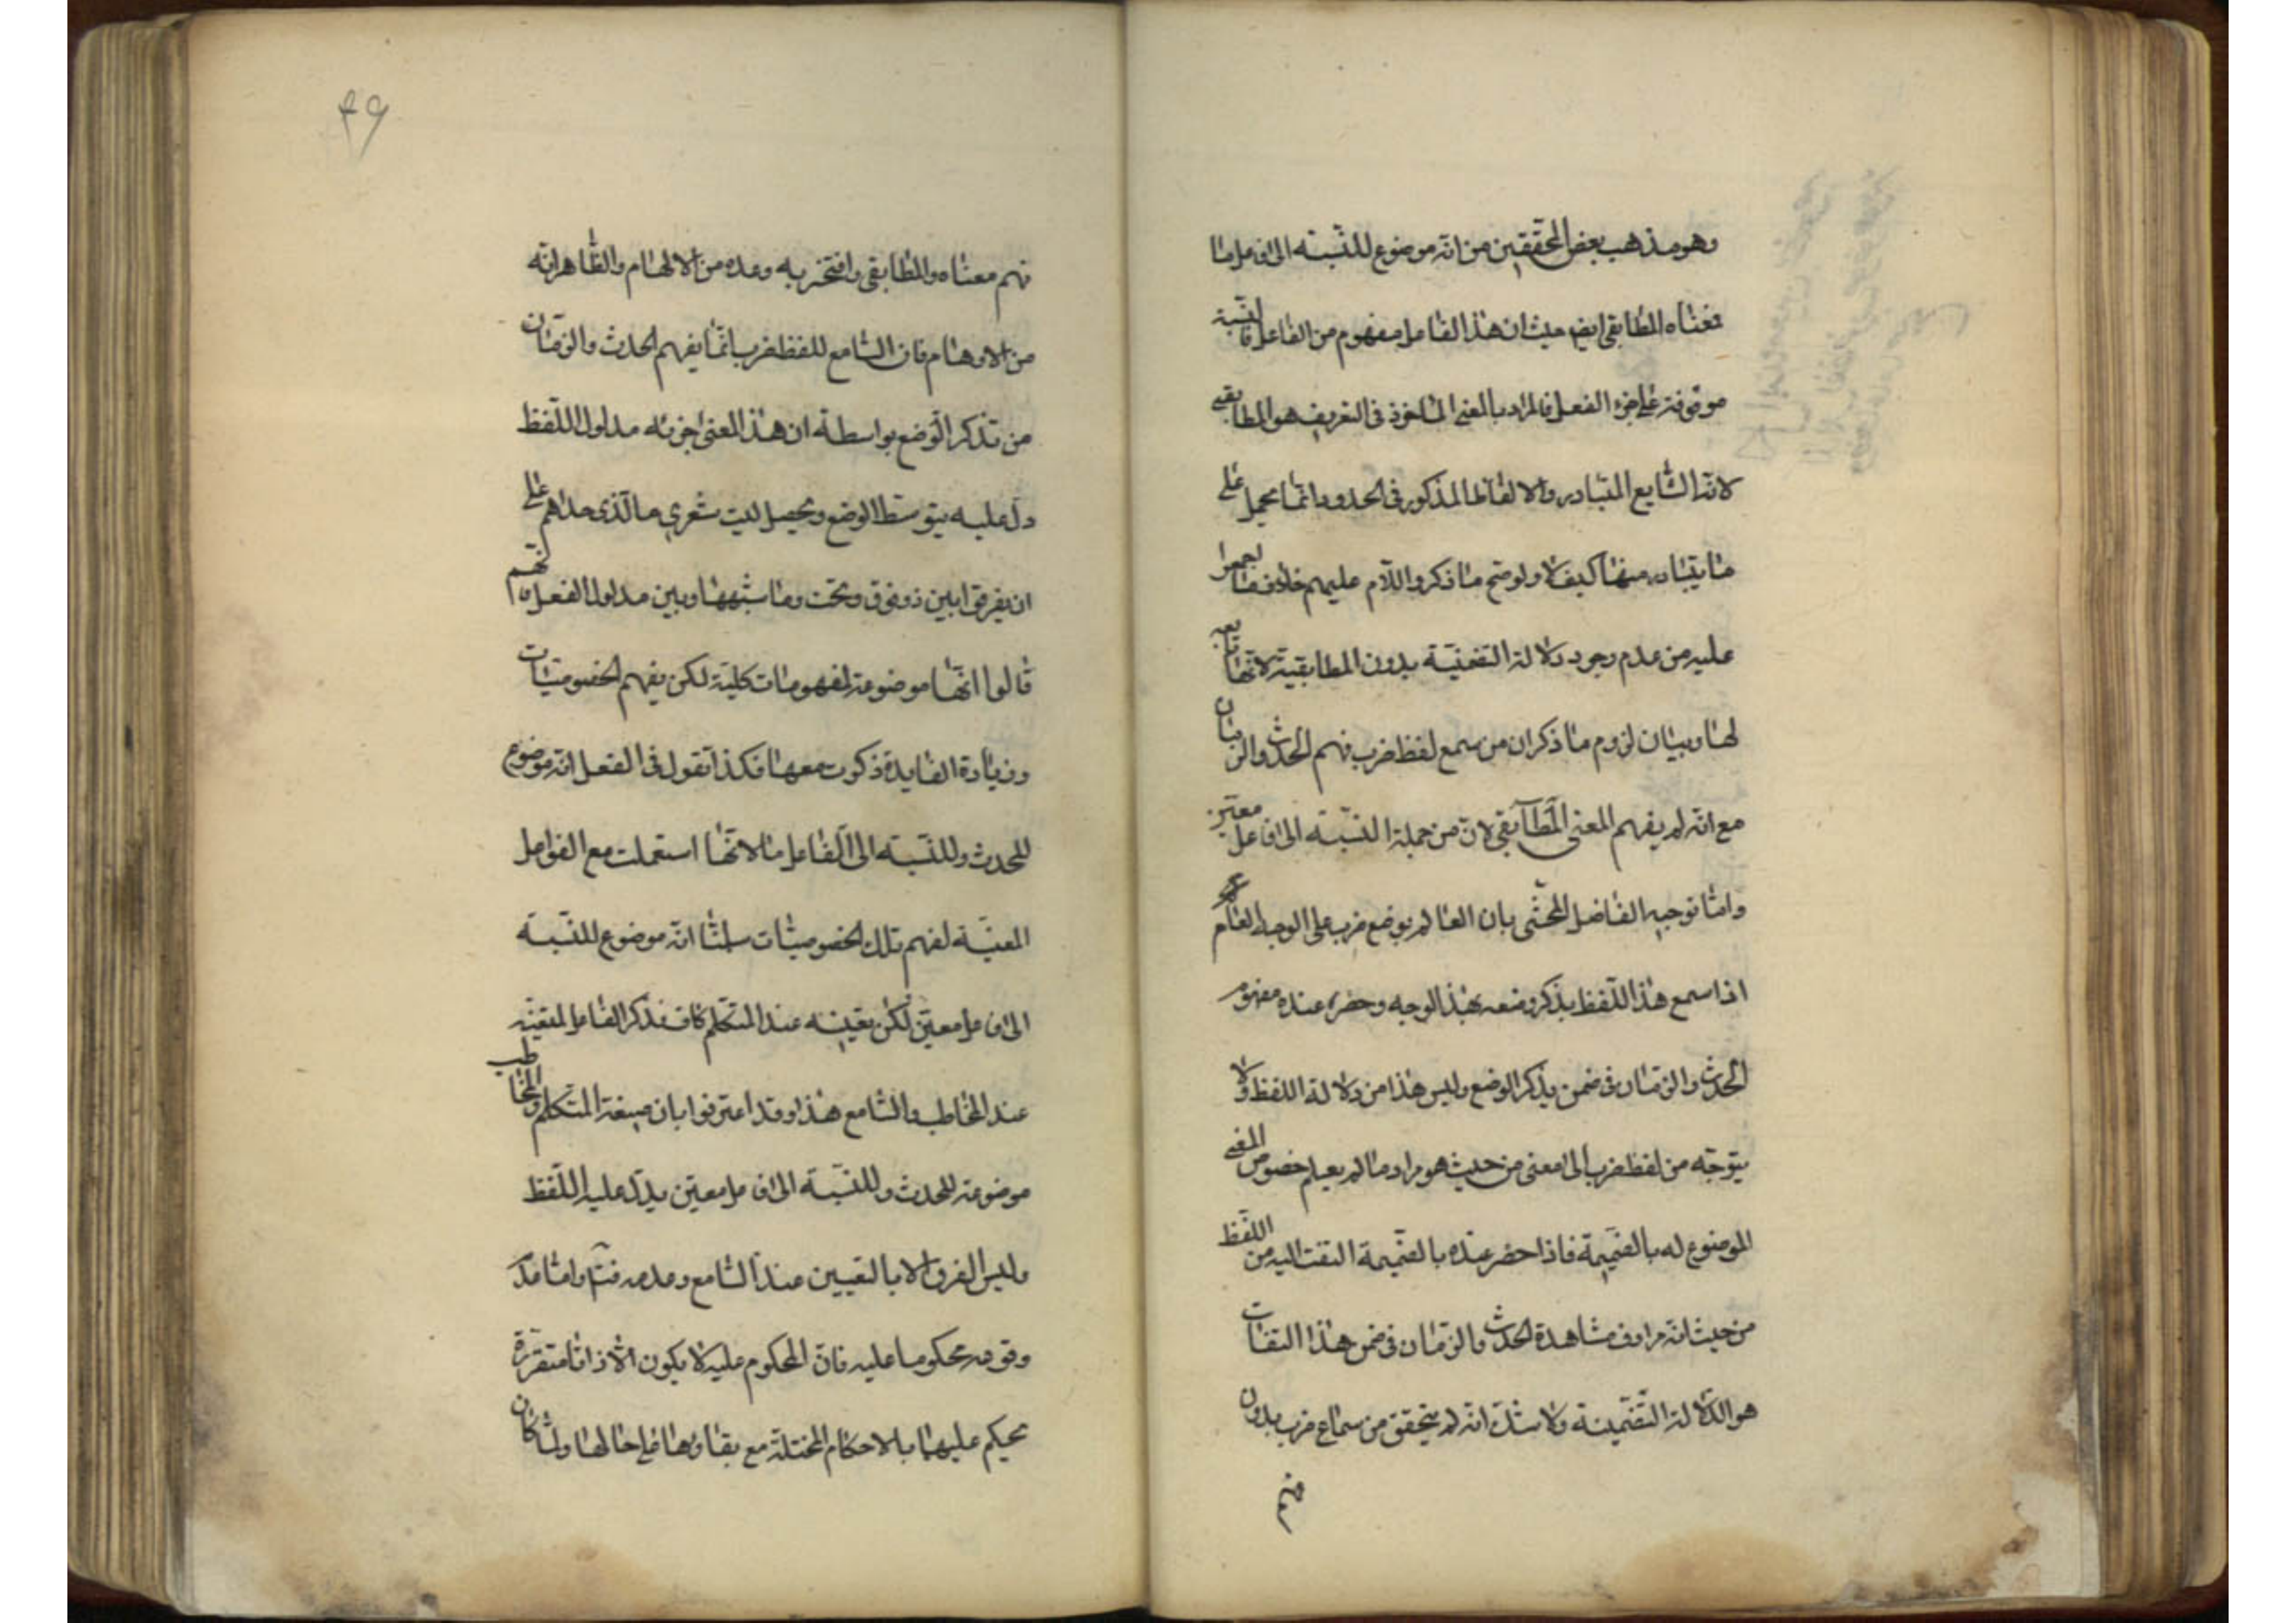 وهو مذهب بعض المحققين من انه موضوع للنسبة الى فاعل ما
فمعناه المطابقى ايض حيث ان هذا الفاعل مفهوم من الفاعل فالنسبة
موقوفة على جزء الفعل فالمراد بالمعنى الماخوذ فى التعريف هو المطابقى
لانه الشايع المتبادر والالفاظ المذكور فى الحدود انما يحمل على
ما يتبادر منها كيف لا ولو صح ما ذكروا اللازم عليهم خلاف ما اجمعوا
عليه من عدم وجود دلالة التضمنية بدون المطابقية لانها تابعة
لها وبيان لزوم ما ذكر ان من سمع لفظ ضرب فهم الحدث والزمان
مع انه لم يفهم المعنى المطابقى لان من جملة النسبة الى فاعل معين
واما توجيه الفاضل المحشى بان العالم بوضع ضرب على الوجه العام
اذا سمع هذا اللفظ يذكر وضعه بهذا الوجه وحضر عنده مفهوم
الحدث والزمان فى ضمن يذكر الوضع وليس هذا من دلالة اللفظ ولا
يتوجه من لفظ ضرب الى معنى من حيث هو مراد ما لم يعلم خصوص المعنى
الموضوع له بالضميمة فاذا حضر عنده بالضميمة التفت اليه من اللفظ
من حيث انه مراد ف مشاهدة الحدث والزمان فى ضمن هذا التفات
هو الدلالة التضمينة ولا شك انه لم يتحقق من سماع ضرب بدون
فهم
۴۹
فهم معناه والمطابقى وافتخر به وعده من الالهام والظاهر انه
من الاوهام فان السامع للفظ ضرب انما يفهم الحدث والزمان
من تذكر الوضع بواسطة ان هذا المعنى جزئه مدلول اللفظ
دل عليه بتوسط الوضع وتحصيل ليت شعرى ما الذى حداهم على
ان يفرقوا بين ذو فوق وتحت وما شبهها وبين مدلول الفعل فانهم
قالوا انها موضوعة لمفهومات كلية لكن يفهم الخصوصيات
وزيادة الفايدة ذكرت معها فكذا نقول فى الفعل انه موضوع
للحدث وللنسبة الى الفاعل ما لانها استعملت مع الفواعل
المعينة لفهم تلك الخصوصيات سلمنا انه موضوع للنسبة
الى فاعل معين لكن تعيينه عند المتكلم كاف فذكر الفاعل لتعينه
عند المخاطب والسامع هذا وقد اعترفوا بان صيغة المتكلم والمخاطب
موضوعة للحدث وللنسبة الى فاعل معين يدل عليه اللفظ
وليس الفرق الا بالتعيين عند السامع وعدمه فتا واما عدم
وقوعه محكوما عليه فان المحكوم عليه لا يكون الا ذاتا متقررة
يحكم عليها بالاحكام المختلة مع بقاوها على حالها ولما كان